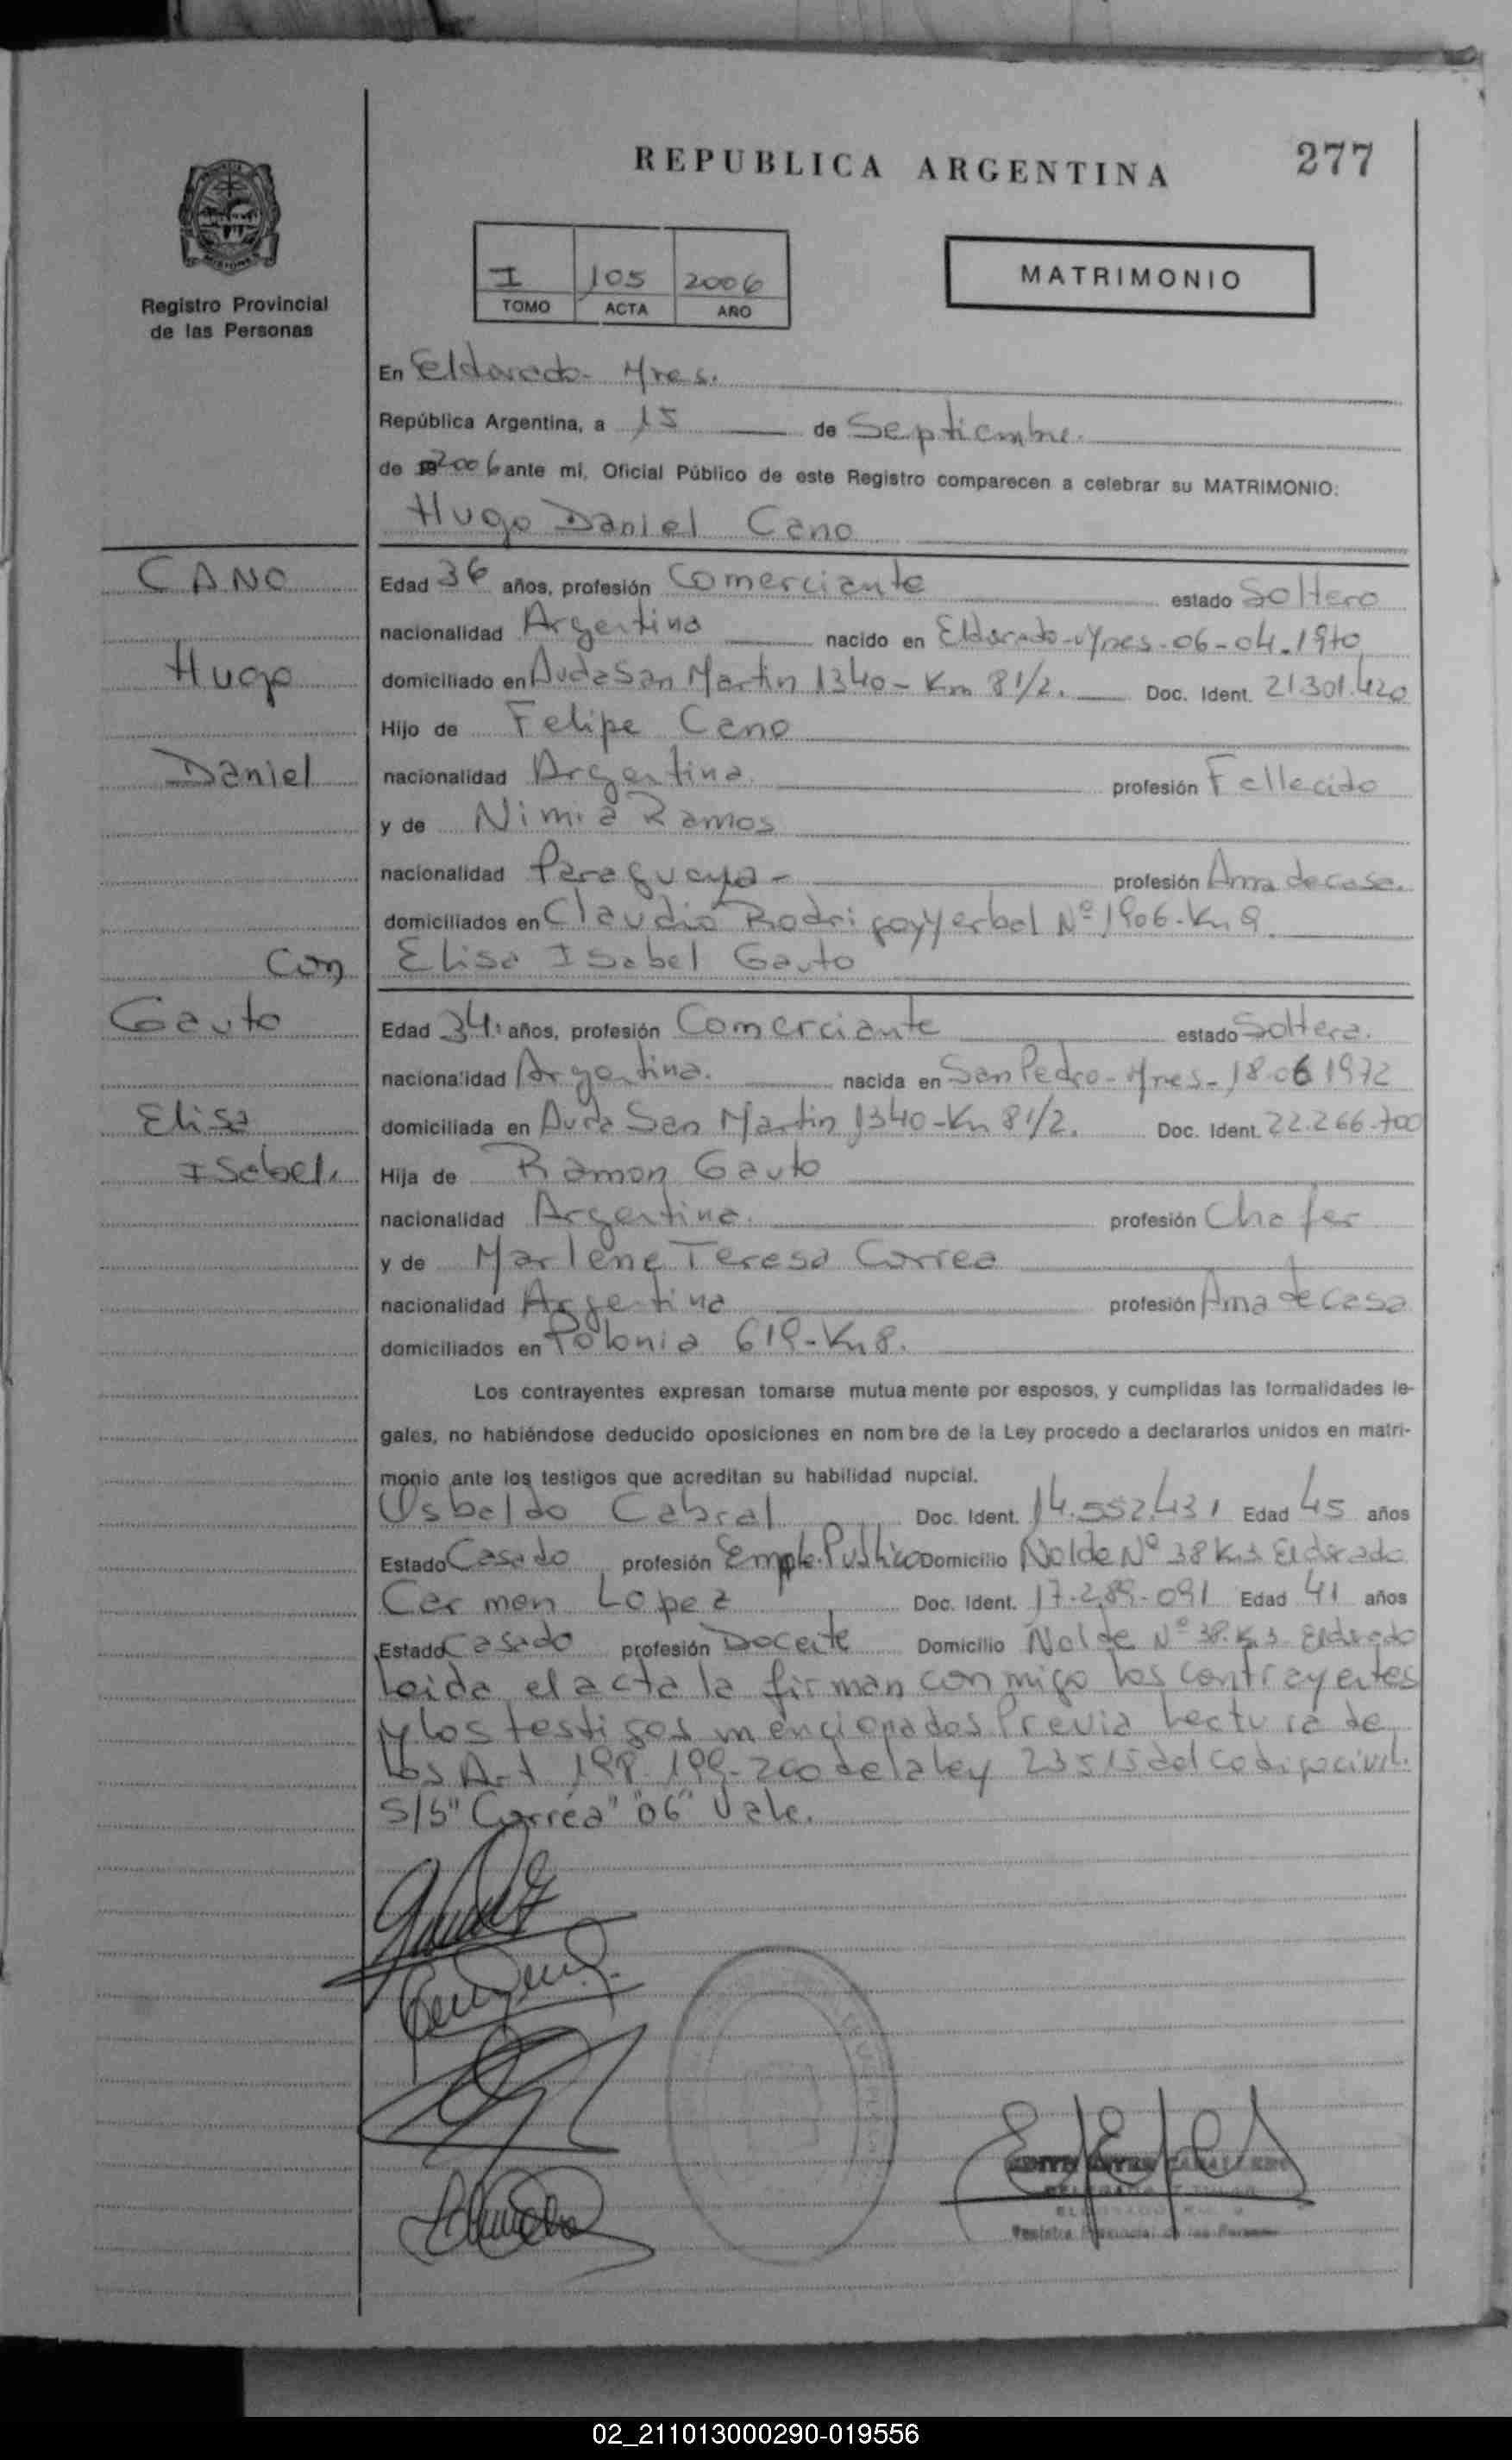 REPUBLICA ARGENTINA
277
Registro Provincial
de las Personas
I 105 2006
TOMO ACTA AÑO
MATRIMONIO
En Eldorado - Mnes.
República Argentina, a 15 de Septiembre.
de 2006 ante mí, Oficial Público de este Registro comparecen a celebrar su MATRIMONIO:
Hugo Daniel Cano
CANO
Hugo
Daniel
Con
Gauto
Elisa
Isabel.
Edad 36 años, profesión Comerciante estado Soltero
nacionalidad Argentina nacido en Eldorado-Mnes-06-04-1970
domiciliado en Avda San Martin 1340 - Km 8 1/2. Doc. Ident. 21.301.420
Hijo de Felipe Cano
nacionalidad Argentina profesión Fallecido
y de Nimia Ramos
nacionalidad Paraguaya - profesión Ama de casa.
domiciliados en Claudio Rodrigo y Yerbal Nº 1906-Km 9
Elisa Isabel Gauto
Edad 34 años, profesión Comerciante estado Soltera.
nacionalidad Argentina. nacida en San Pedro-Mnes-18-06 1972
domiciliada en Avda San Martin 1340-Km 8 1/2. Doc. Ident. 22.266.700
Hija de Ramon Gauto
nacionalidad Argentina. profesión Chofer
y de Marlene Teresa Correa
nacionalidad Argentina profesión Ama de casa
domiciliados en Polonia 619-Km 8.
Los contrayentes expresan tomarse mutua mente por esposos, y cumplidas las formalidades le-
gales, no habiéndose deducido oposiciones en nom bre de la Ley procedo a declararlos unidos en matri-
monio ante los testigos que acreditan su habilidad nupcial.
Osbaldo Cabral Doc. Ident. 14.552.431 Edad 45 años
Estado Casado profesión Emple. Publico Domicilio Nolde Nº 38 Km 3 Eldorado
Carmen Lopez Doc. Ident. 17-289-091 Edad 41 años
Estado Casado profesión Docente Domicilio Nolde Nº 38. Km 3 Eldorado
Leida el acta la firman con migo los contrayentes
y los testigos mencionados Previa Lectura de
Los Art 198-199-200 de la ley 23515 del codigo civil.
S/b "Correa" "06" Vale.
Registro Provincial de las Personas
02_211013000290-019556